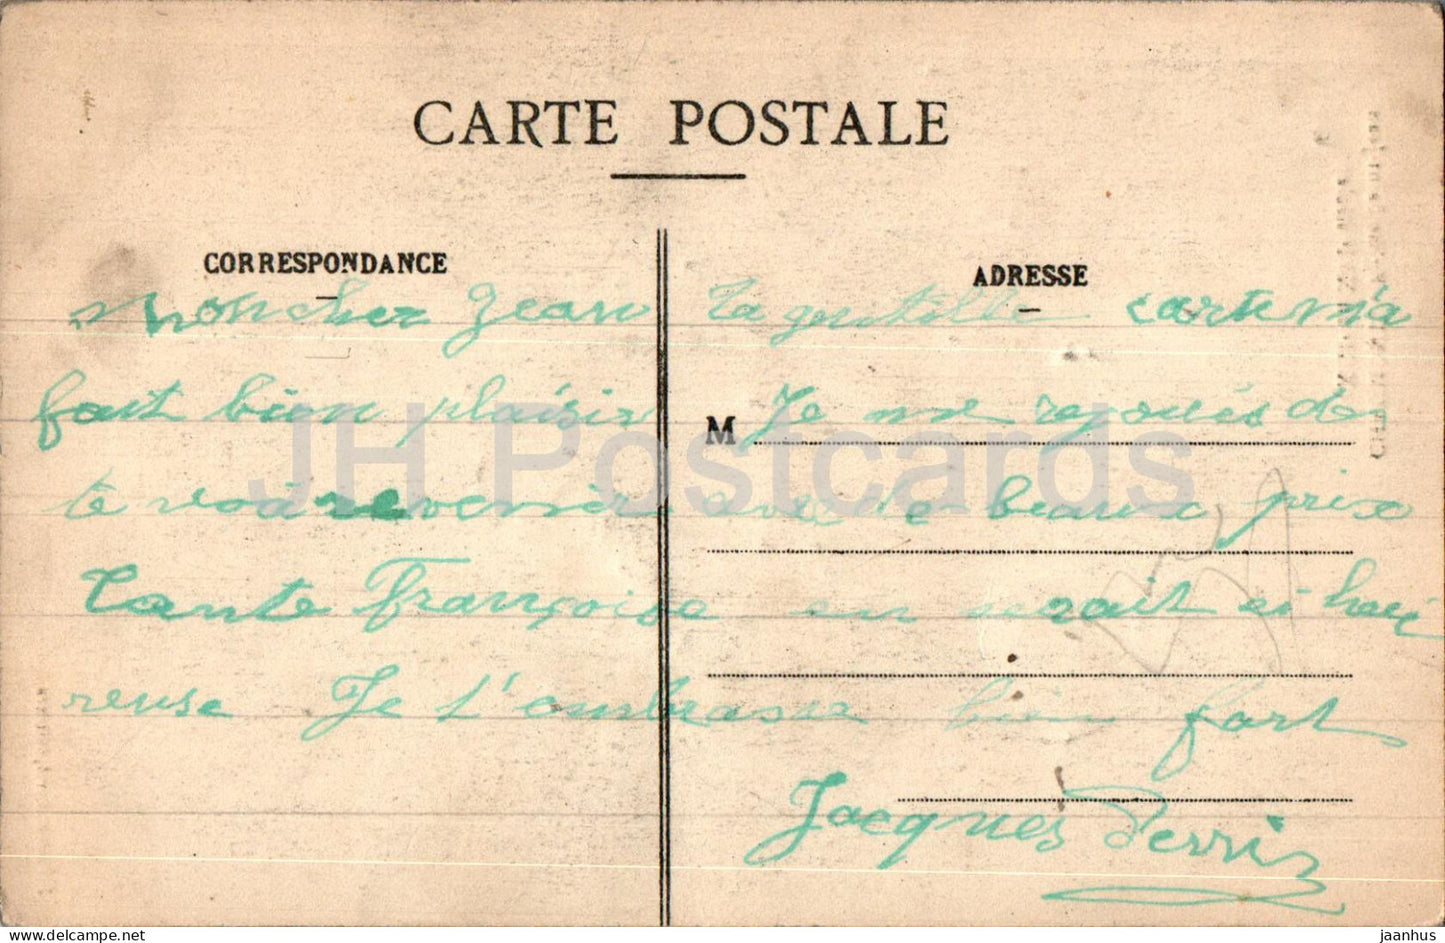 CARTE POSTALE
CORRESPONDANCE
ADRESSE
Mon cher Jean ta gentille carte m'a
fait bien plaisir Je me rejouis de
M
te voir revenir avec de beaux prix
Tante Françoise en serait si heu
reuse Je t'embrasse bien fort
Jacques Perrin
JH Postcards
www.delcampe.net
jaanhus